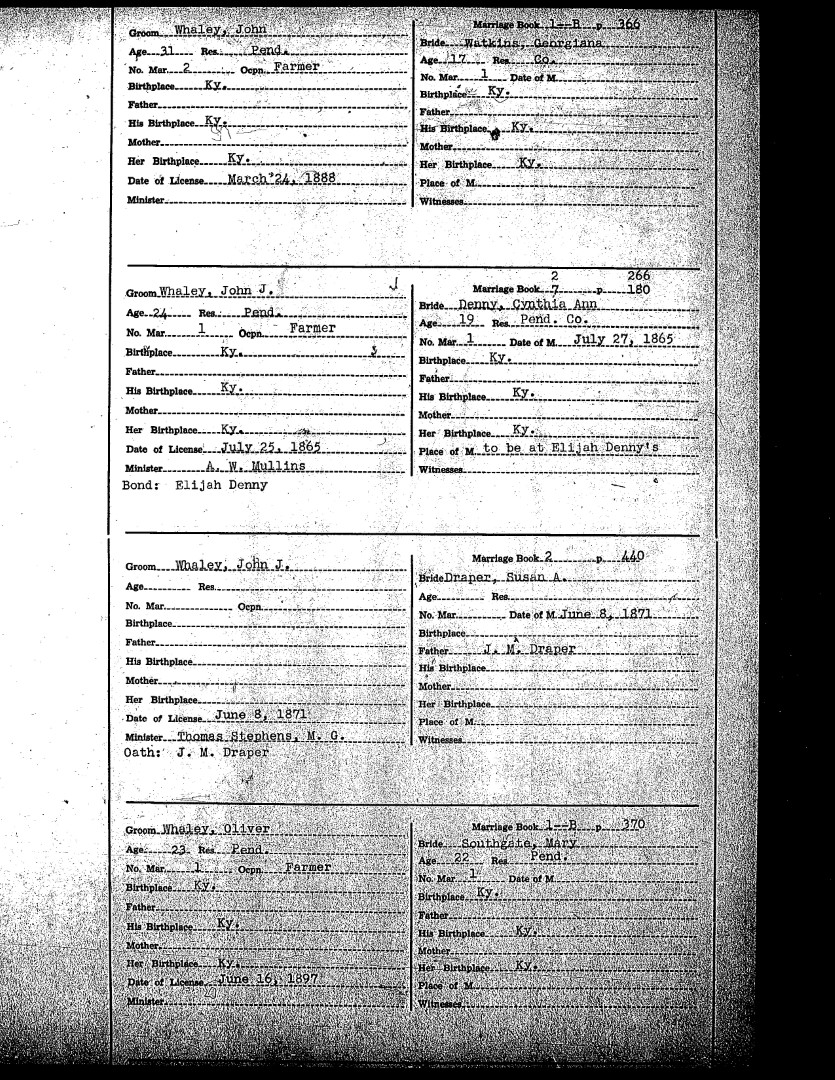 Groom Whaley, John
Age 31 Res. Pend.
No. Mar. 2 Ocpn. Farmer
Birthplace Ky.
Father
His Birthplace Ky.
Mother
Her Birthplace Ky.
Date of License March 24, 1888
Minister
Marriage Book 1--B p. 366
Bride Watkins, Georgiana
Age 17 Res Co.
No. Mar. 1 Date of M.
Birthplace Ky.
Father
His Birthplace Ky.
Mother
Her Birthplace Ky.
Place of M.
Witnesses
Groom Whaley, John J.
Age 24 Res. Pend.
No. Mar. 1 Ocpn. Farmer
Birthplace Ky.
Father
His Birthplace Ky.
Mother
Her Birthplace Ky.
Date of License July 25, 1865
Minister A. W. Mullins
Bond: Elijah Denny
2 266
Marriage Book 7 p. 180
Bride Denny, Cynthia Ann
Age 19 Res. Pend. Co.
No. Mar. 1 Date of M. July 27, 1865
Birthplace Ky.
Father
His Birthplace Ky.
Mother
Her Birthplace Ky.
Place of M. to be at Elijah Denny's
Witnesses
Groom Whaley, John J.
Age Res.
No. Mar. Ocpn.
Birthplace
Father
His Birthplace
Mother
Her Birthplace
Date of License June 8, 1871
Minister Thomas Stephens, M. G.
Oath: J. M. Draper
Marriage Book 2 p. 440
Bride Draper, Susan A.
Age Res.
No. Mar. Date of M. June 8, 1871
Birthplace
Father J. M. Draper
His Birthplace
Mother
Her Birthplace
Place of M.
Witnesses
Groom Whaley, Oliver
Age 23 Res Pend.
No. Mar. 1 Ocpn. Farmer
Birthplace Ky.
Father
His Birthplace Ky.
Mother
Her Birthplace Ky.
Date of License June 16, 1897
Minister
Marriage Book 1--B p. 370
Bride Southgate, Mary
Age 22 Res Pend.
No. Mar. 1 Date of M.
Birthplace Ky.
Father
His Birthplace Ky.
Mother
Her Birthplace Ky.
Place of M.
Witnesses